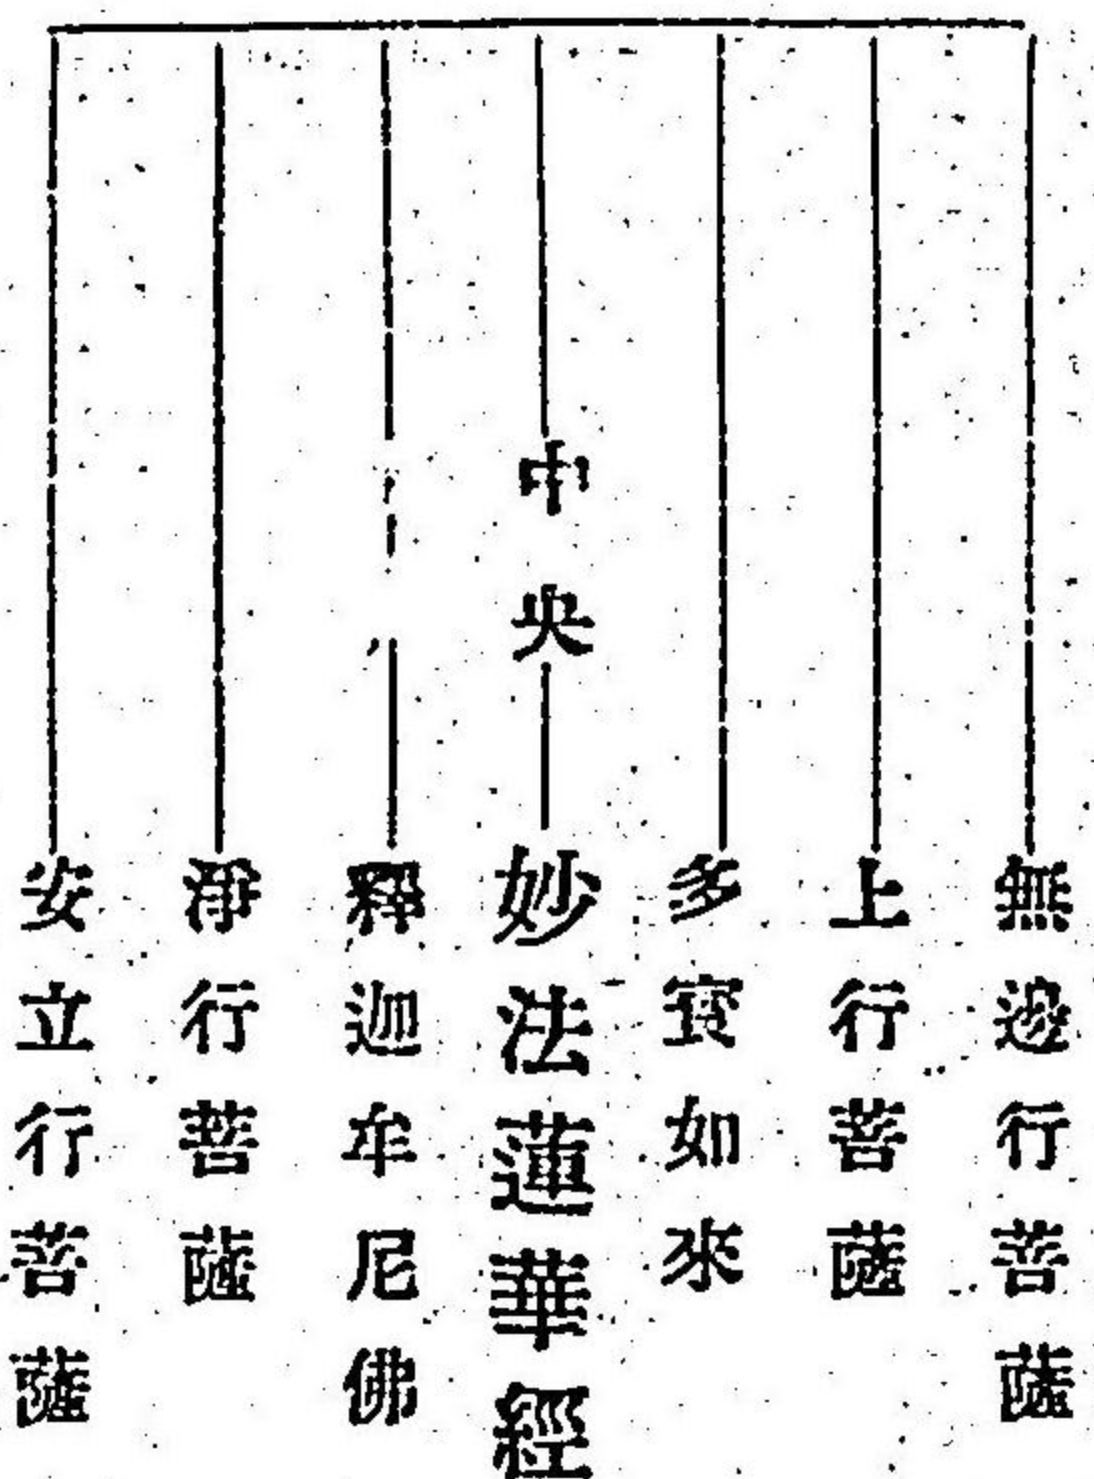 無邊行菩薩
上行菩薩
多寳如來
中央
妙法蓮華經
釋迦牟尼佛
淨行菩薩
安立行菩薩